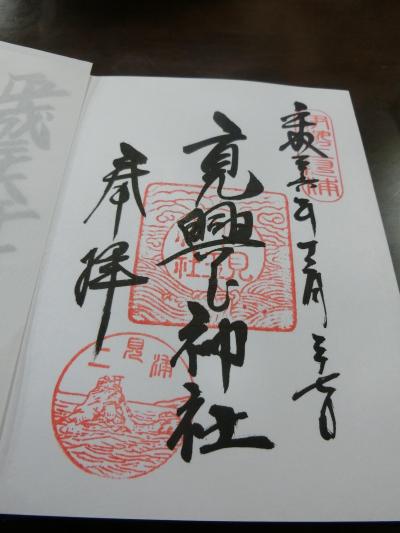 伊勢二見浦
平成二十六年十二月二十七日
二見興玉神社
奉拝
二見浦